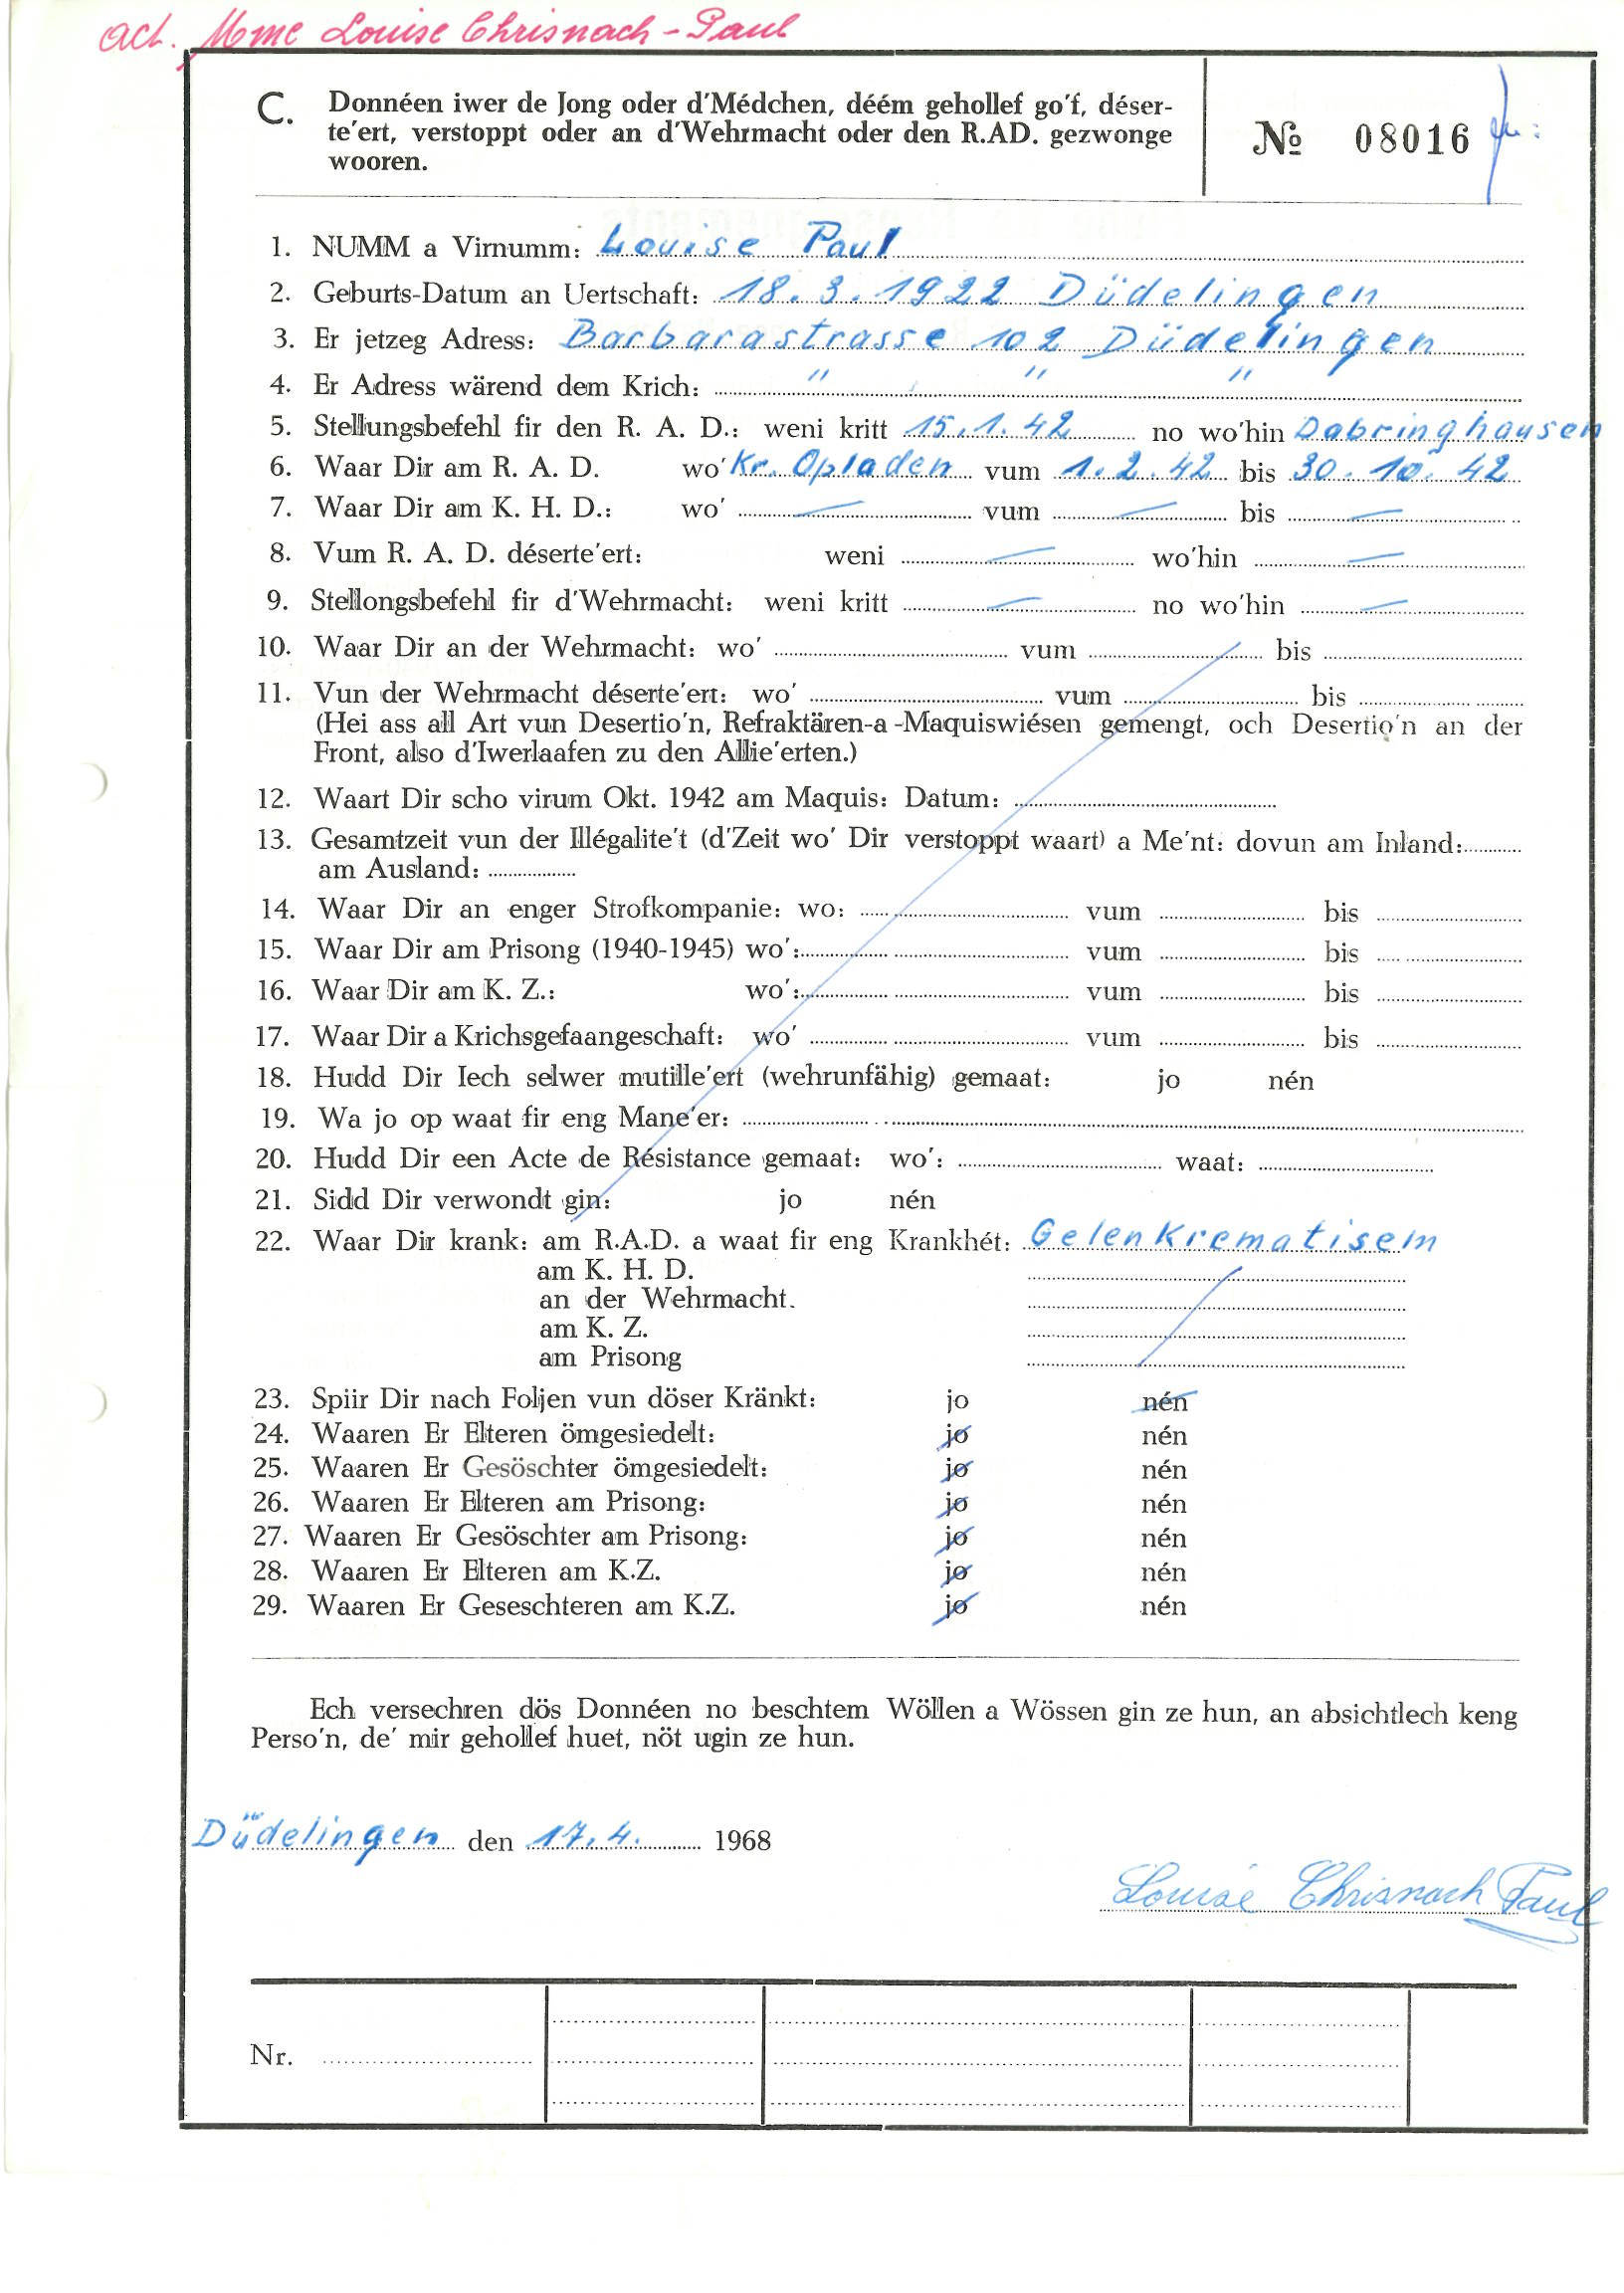 act. Mme Louise Chrisnach-Paul
C. Donnéen iwer de Jong oder d'Médchen, déém gehollef go'f, déser-
te'ert, verstoppt oder an d'Wehrmacht oder den R.AD. gezwonge
wooren.
№ 08016
1. NUMM a Virnumm: Louise Paul
2. Geburts-Datum an Uertschaft: 18.3.1922 Düdelingen
3. Er jetzeg Adress: Barbarastrasse 102 Düdelingen
4. Er Adress wärend dem Krich: " " "
5. Stellungsbefehl fir den R. A. D.: weni kritt 15.1.42 no wo'hin Dabringhausen
6. Waar Dir am R. A. D. wo' Kr. Opladen vum 1.2.42 bis 30.10.42
7. Waar Dir am K. H. D.: wo' — vum — bis —
8. Vum R. A. D. déserte'ert: weni — wo'hin —
9. Stellongsbefehl fir d'Wehrmacht: weni kritt — no wo'hin —
10. Waar Dir an der Wehrmacht: wo' vum bis
11. Vun der Wehrmacht déserte'ert: wo' vum bis
(Hei ass all Art vun Desertio'n, Refraktären-a-Maquiswiésen gemengt, och Desertio'n an der
Front, also d'Iwerlaafen zu den Allie'erten.)
12. Waart Dir scho virum Okt. 1942 am Maquis: Datum:
13. Gesamtzeit vun der Illégalite't (d'Zeit wo' Dir verstoppt waart) a Me'nt: dovun am Inland:
am Ausland:
14. Waar Dir an enger Strofkompanie: wo: vum bis
15. Waar Dir am Prisong (1940-1945) wo': vum bis
16. Waar Dir am K. Z.: wo': vum bis
17. Waar Dir a Krichsgefaangeschaft: wo' vum bis
18. Hudd Dir Iech selwer mutille'ert (wehrunfähig) gemaat: jo nén
19. Wa jo op waat fir eng Mane'er:
20. Hudd Dir een Acte de Résistance gemaat: wo': waat:
21. Sidd Dir verwondt gin: jo nén
22. Waar Dir krank: am R.A.D. a waat fir eng Krankhét: Gelenkrematisem
am K. H. D.
an der Wehrmacht.
am K. Z.
am Prisong
23. Spiir Dir nach Foljen vun döser Kränkt: jo nén
24. Waaren Er Elteren ömgesiedelt: jo nén
25. Waaren Er Gesöschter ömgesiedelt: jo nén
26. Waaren Er Elteren am Prisong: jo nén
27. Waaren Er Gesöschter am Prisong: jo nén
28. Waaren Er Elteren am K.Z. jo nén
29. Waaren Er Geseschteren am K.Z. jo nén
Ech versechren dös Donnéen no beschtem Wöllen a Wössen gin ze hun, an absichtlech keng
Perso'n, de' mir gehollef huet, nöt ugin ze hun.
Düdelingen den 17.4. 1968
Louise Chrisnach Paul
Nr.